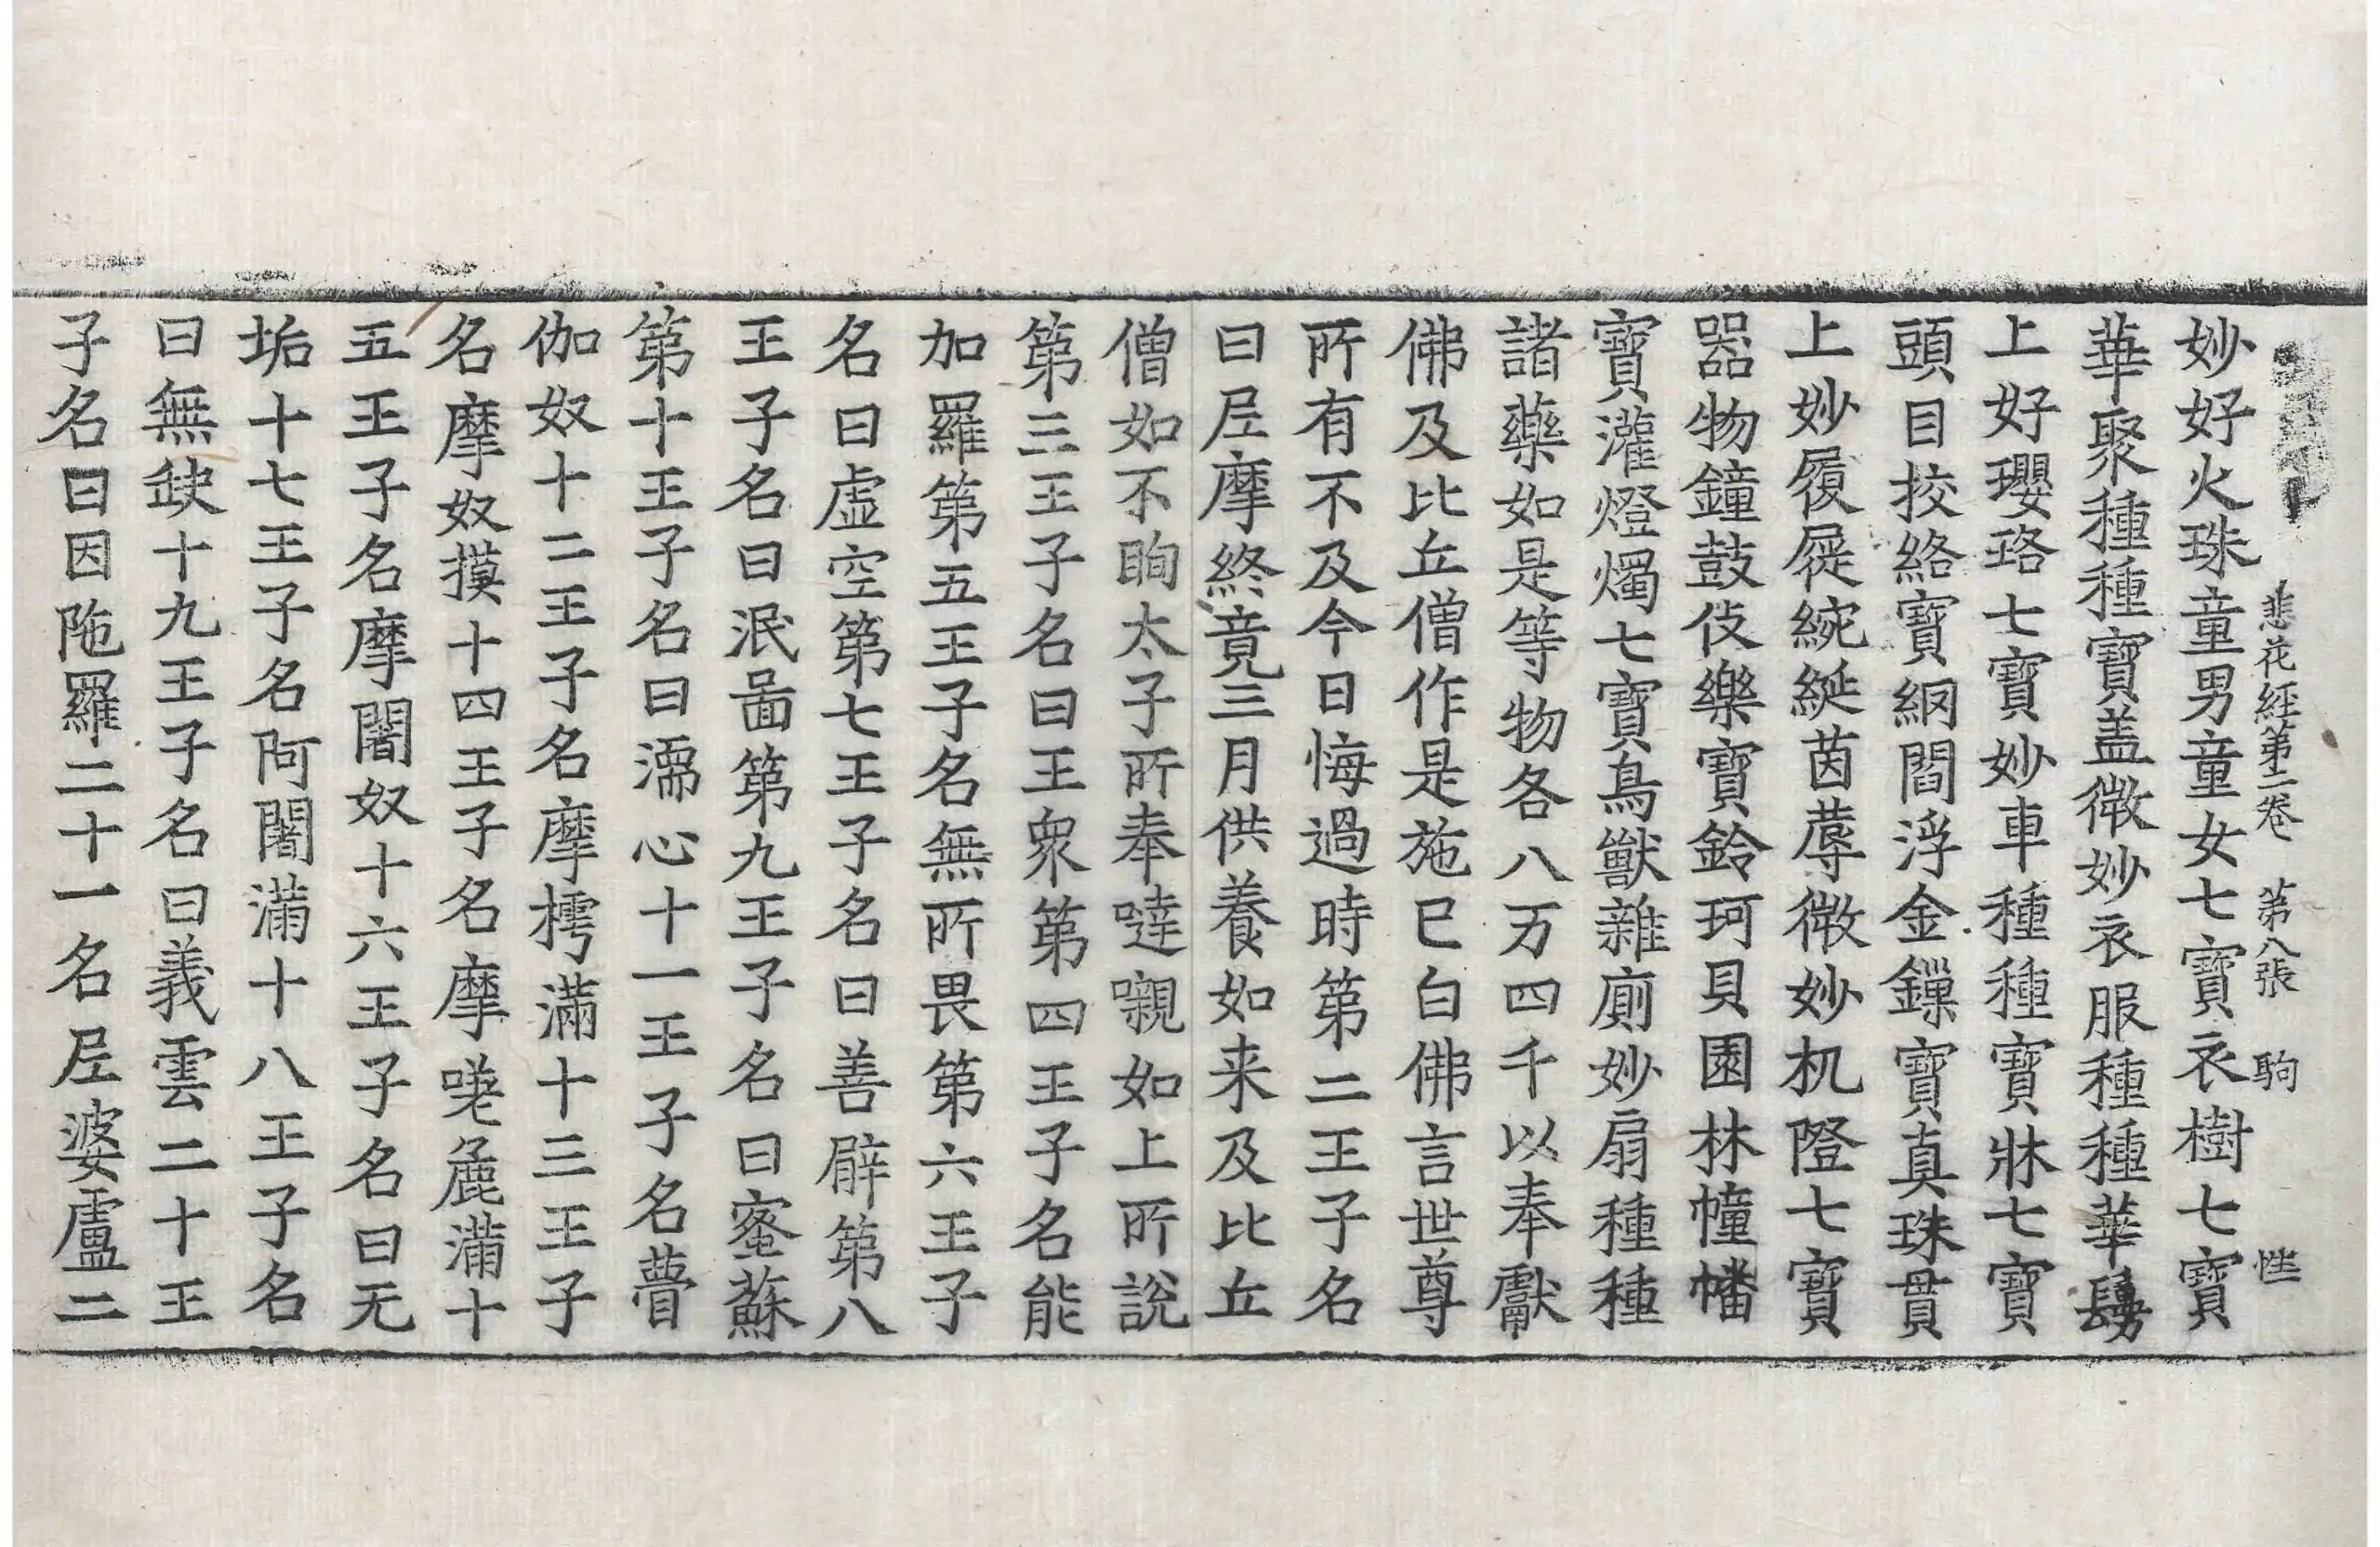 悲花経第二卷 第八張 駒
妙好火珠童男童女七寶衣樹七寶
華聚種種寶盖微妙衣服種種華鬘
上好瓔珞七寶妙車種種寶牀七寶
頭目挍絡寶網閻浮金鏁寶真珠貫
上妙履屣綩綖茵蓐微妙机隥七寶
器物鐘鼓伎樂寶鈴珂貝園林幢幡
寶灌燈燭七寶鳥獸雜廁妙扇種種
諸藥如是等物各八万四千以奉獻
佛及比丘僧作是施已白佛言世尊
所有不及今日悔過時第二王子名
曰尼摩終竟三月供養如来及比丘
僧如不眴太子所奉噠嚫如上所說
第三王子名曰王衆第四王子名能
加羅第五王子名無所畏第六王子
名曰虚空第七王子名曰善臂第八
王子名曰泯圖第九王子名曰蜜蘇
第十王子名曰濡心十一王子名瞢
伽奴十二王子名摩樗滿十三王子
名摩奴摸十四王子名摩嗟麁滿十
五王子名摩闍奴十六王子名曰无
垢十七王子名阿闍滿十八王子名
曰無缺十九王子名曰義雲二十王
子名曰因陁羅二十一名尼婆盧二